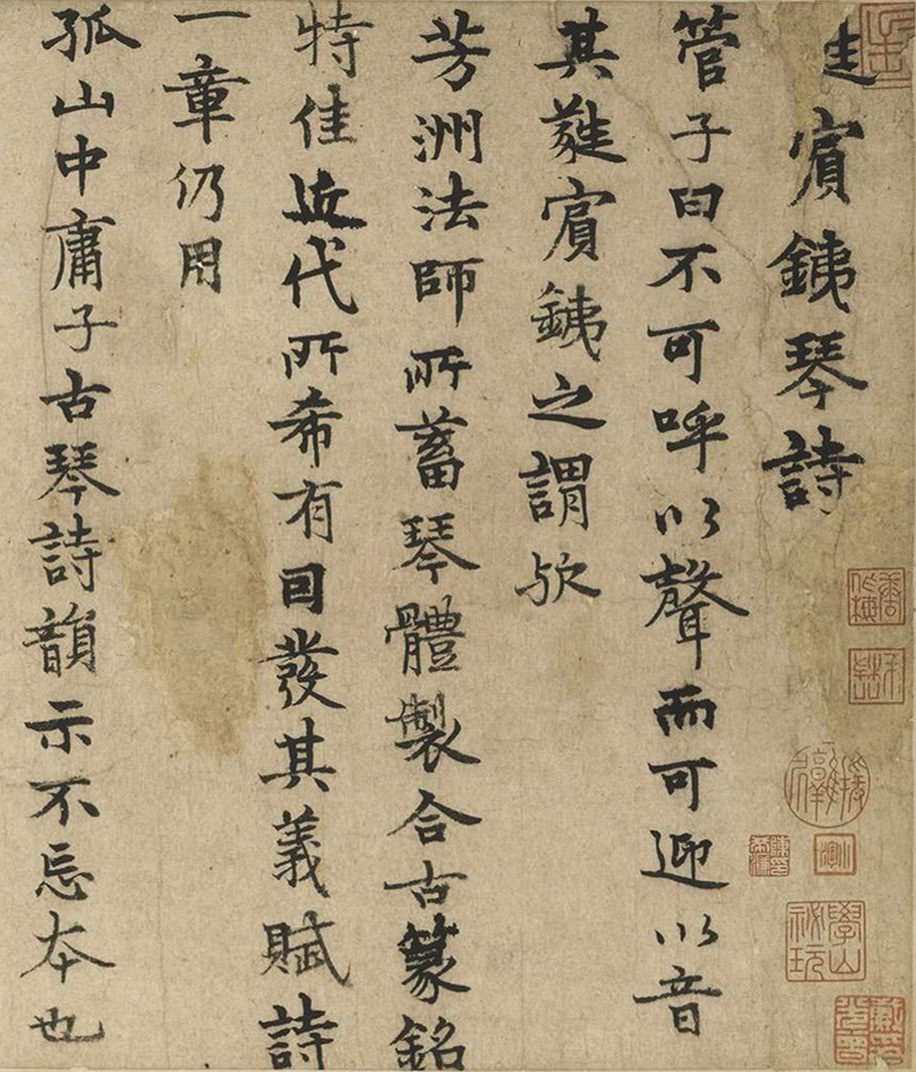 賔銕琴詩
管子曰不可呼以聲而可迎以音
其蕤賔銕之謂欤
芳洲法師所蓄琴體製合古篆銘
特佳近代所希有囙發其義賦詩
一章仍用
孤山中庸子古琴詩韻示不忘本也
學山祕玩